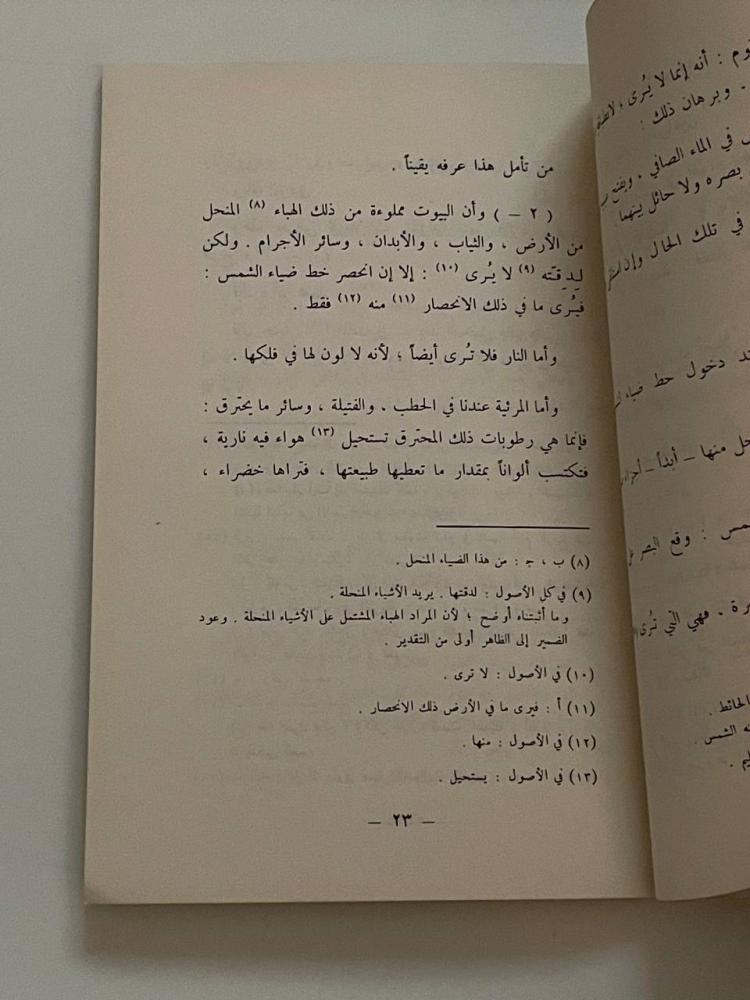 من تأمل هذا عرفه يقيناً .
( ٢ – ) وأن البيوت مملوءة من ذلك الهباء (٨) المنحل
من الأرض ، والثياب ، والأبدان ، وسائر الأجرام . ولكن
لِدِقَّته (٩) لا يُرى (١٠) : إلا إن انحصر خط ضياء الشمس :
فيُرى ما في ذلك الانحصار (١١) منه (١٢) فقط .
وأما النار فلا تُرى أيضاً ؛ لأنه لا لون لها في فلكها .
وأما المرئية عندنا في الحطب . والفتيلة ، وسائر ما يحترق :
فإنما هي رطوبات ذلك المحترق تستحيل (١٣) هواء فيه نارية ،
فتكتسب ألواناً بمقدار ما تعطيها طبيعتها ، فتراها خضراء ،
(٨) ب ، ج : من هذا الضياء المنحل .
(٩) في كل الأصول : لدقتها . يريد الأشياء المنحلة .
وما أثبتناه أوضح ؛ لأن المراد الهباء المشتمل على الأشياء المنحلة . وعود
الضمير إلى الظاهر أولى من التقدير .
(١٠) في الأصول : لا ترى .
(١١) أ : فيرى ما في الأرض ذلك الانحصار .
(١٢) في الأصول : منها .
(١٣) في الأصول : يستحيل .
– ٢٣ –
: أنه إنما لا يُرى ؛
. وبرهان ذلك :
في الماء الصافي ،
بصره ولا حائل بينهما
في تلك الحال وإن
دخول خط ضياء
منها – أبداً –
: وقع البصر
. فهي التي
الحائط .
الشمس .